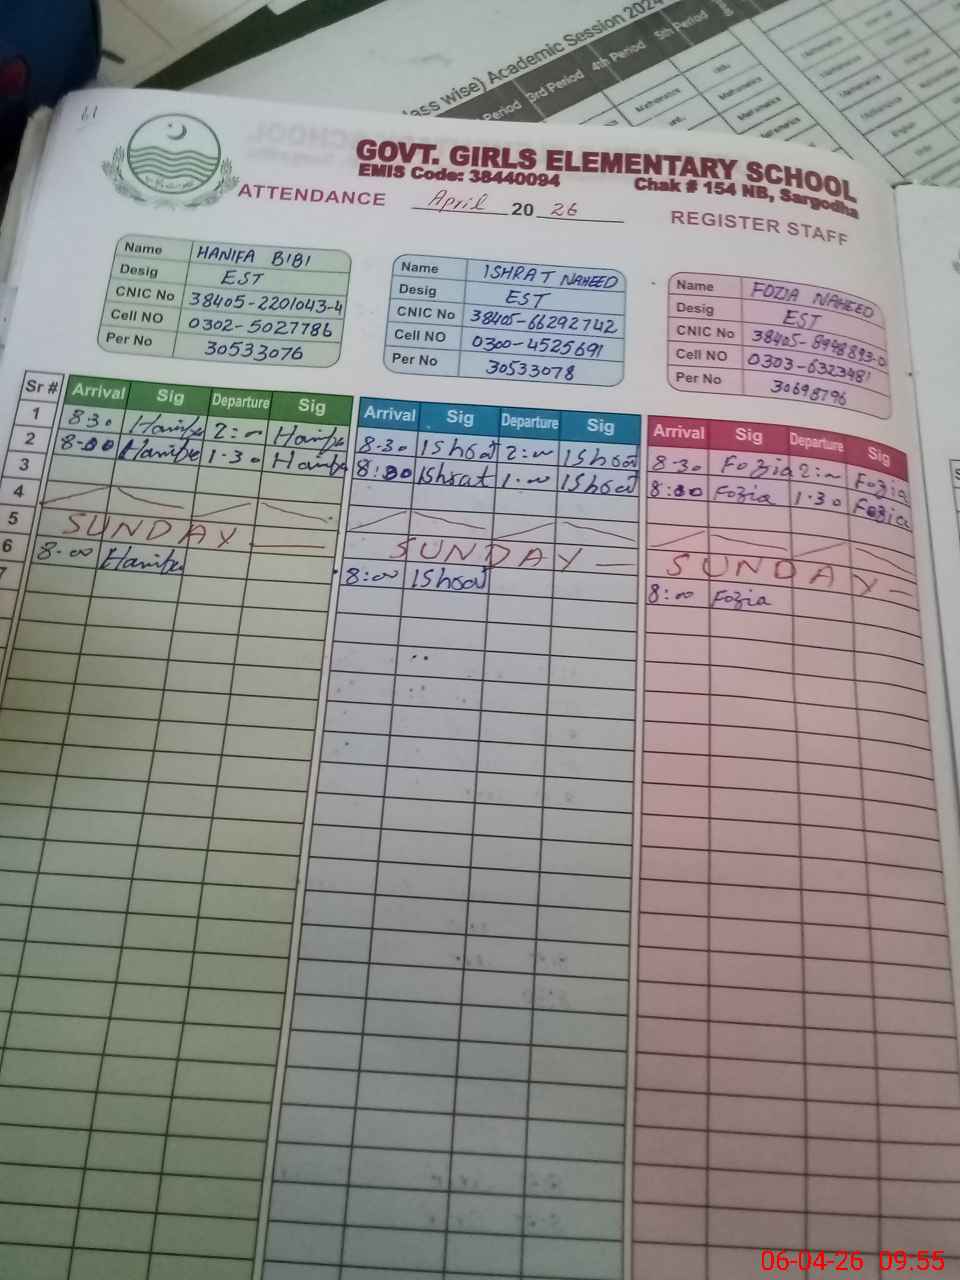 61
(Class wise) Academic Session 2024
Period 3rd Period 4th Period 5th Period
Mathematics
GOVT. GIRLS ELEMENTARY SCHOOL
EMIS Code: 38440094 Chak # 154 NB, Sargodha
ATTENDANCE April 20 26 REGISTER STAFF
Name HANIFA BIBI
Desig EST
CNIC No 38405-2201043-4
Cell NO 0302-5027786
Per No 30533076
Name ISHRAT NAHEED
Desig EST
CNIC No 38405-66292742
Cell NO 0300-4525691
Per No 30533078
Name FOZIA NAHEED
Desig EST
CNIC No 38405-8948893-0
Cell NO 0303-6323481
Per No 30698796
Sr # Arrival Sig Departure Sig Arrival Sig Departure Sig Arrival Sig Departure Sig
1 8:30 Hanifa 2:00 Hanifa 8:30 Ishrat 2:00 Ishrat 8:30 Fozia 2:00 Fozia
2 8:00 Hanifa 1:30 Hanifa 8:00 Ishrat 1:00 Ishrat 8:00 Fozia 1:30 Fozia
3
4
5 SUNDAY SUNDAY SUNDAY
6 8:00 Hanifa 8:00 Ishrat 8:00 Fozia
7
06-04-26 09:55